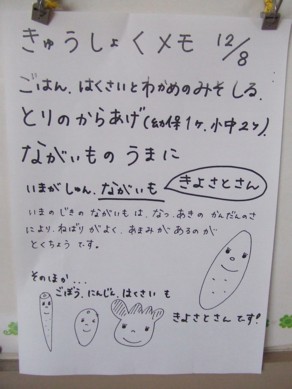 きゅうしょくメモ 12/8
ごはん、はくさいとわかめのみそしる、
とりのからあげ(幼保1ケ、小中2ケ)、
ながいものうまに
いまがしゅん、ながいも きよさとさん
いまのじきのながいもは、なつ、あきのかんだんのさ
により、ねばりがよく、あまみがあるのが
とくちょうです。
そのほか...
ごぼう、にんじん、はくさいも
きよさとさんです!